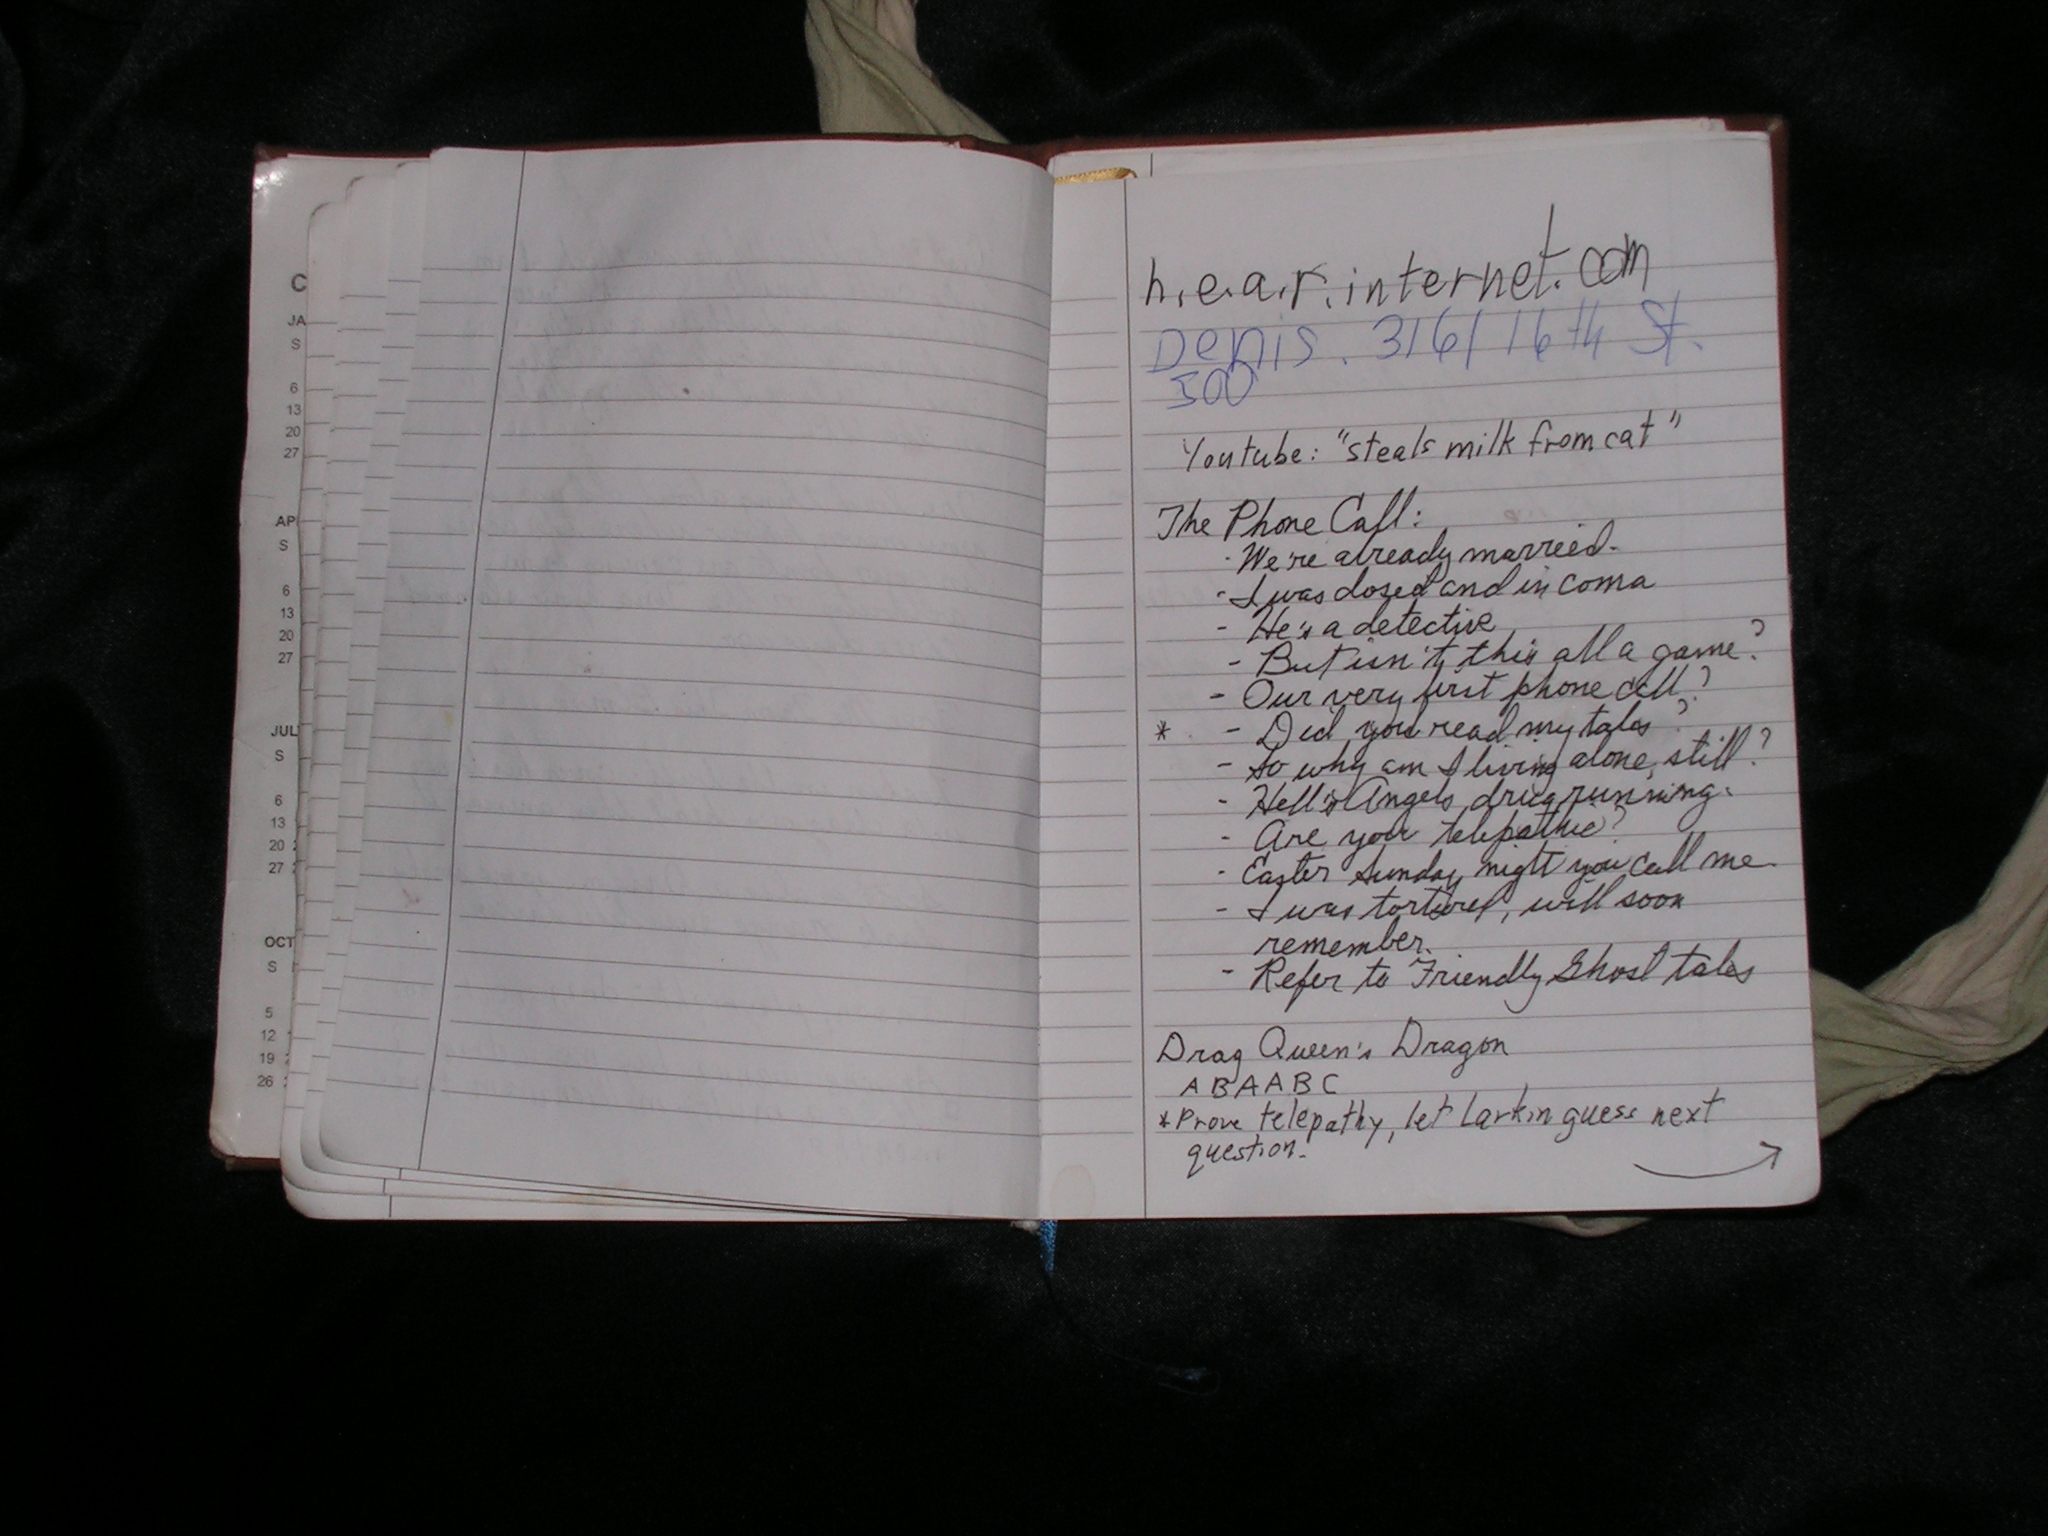 C
JA
S
6
13
20
27
AP
S
6
13
20
27
JUL
S
6
13
20
27
OCT
S
5
12
19
26
h.e.a.r.internet.com
Denis. 316/16th St.
500
Youtube: "steals milk from cat"
The Phone Call:
- We're already married.
- I was dosed and in coma
- He's a detective
- But isn't this all a game?
- Our very first phone call?
* - Did you read my tales?
- So why am I living alone, still?
- Hell's Angels drug running.
- Are you telepathic?
- Easter Sunday night you call me
- I was tortured, will soon
remember.
- Refer to Friendly Ghost tales
Drag Queen's Dragon
ABAABC
*Prove telepathy, let Larkin guess next
question.